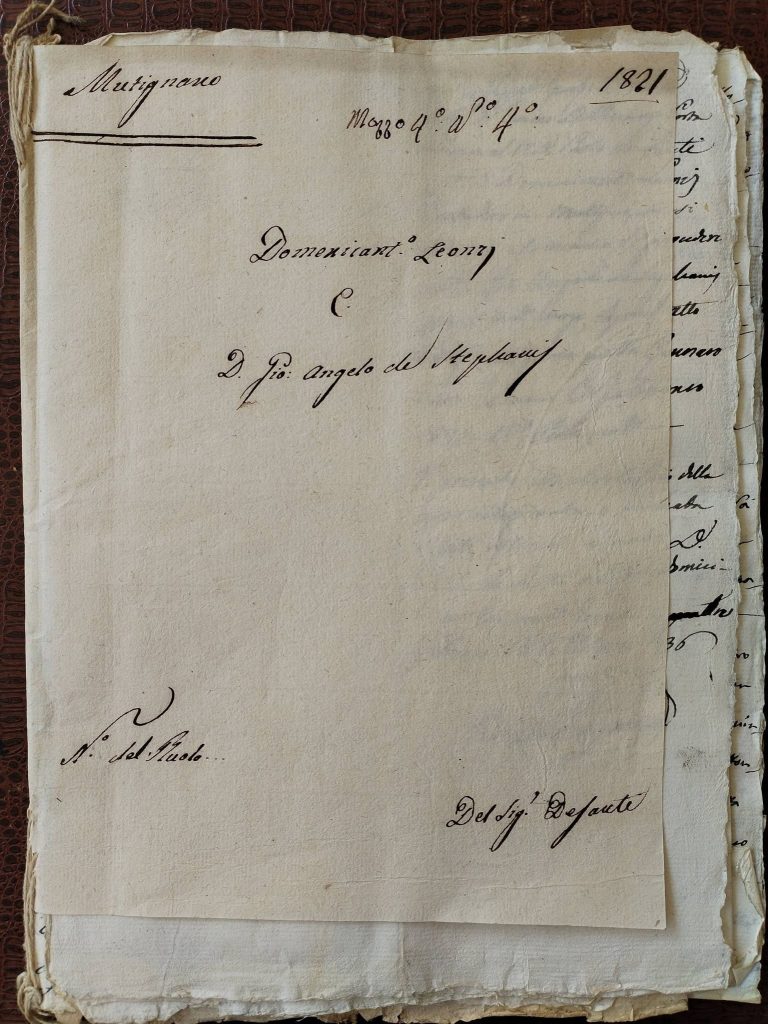 Mutignano
1821
Mazzo 4.° N.° 4.°
Domenicant.° Leonij
C.
D. Gio: Angelo de Stephanis
N.° del Ruolo...
Del Sig.r Desante
della
D.
36